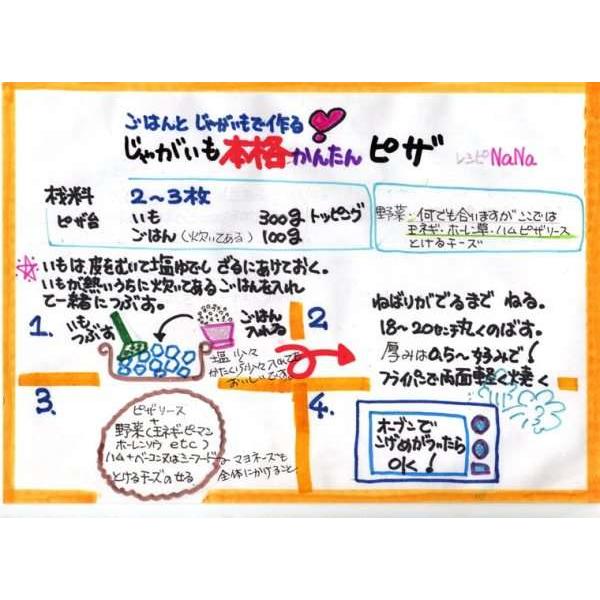 ごはんと じゃがいもで作る
じゃがいも本格かんたん ピザ
レシピ NaNa
材料 2〜3枚
ピザ台 いも 300g トッピング
ごはん(炊いてある) 100g
野菜・何でも合いますがここでは
玉ネギ・ホーレン草・ハム ピザソース
とけるチーズ
☆いもは、皮をむいて塩ゆでし ざるにあけておく。
いもが熱いうちに 炊いてあるごはんを入れ
て一緒につぶす。
1. いも つぶす
ごはん 入れる
塩少々
かたくり少々入れても
おいしいです。
2
ねばりがでるまで ねる。
18〜20センチ丸くのばす。
厚みは0.5〜好みで!
フライパンで両面軽く焼く
3.
ピザソース
+
野菜(玉ネギ・ピーマン
ホーレンソウ etc)
ハム+ベーコン又はシーフード
とけるチーズのせる
マヨネーズも
全体にかけること。
4.
オーブンで
こげめがついたら
OK!